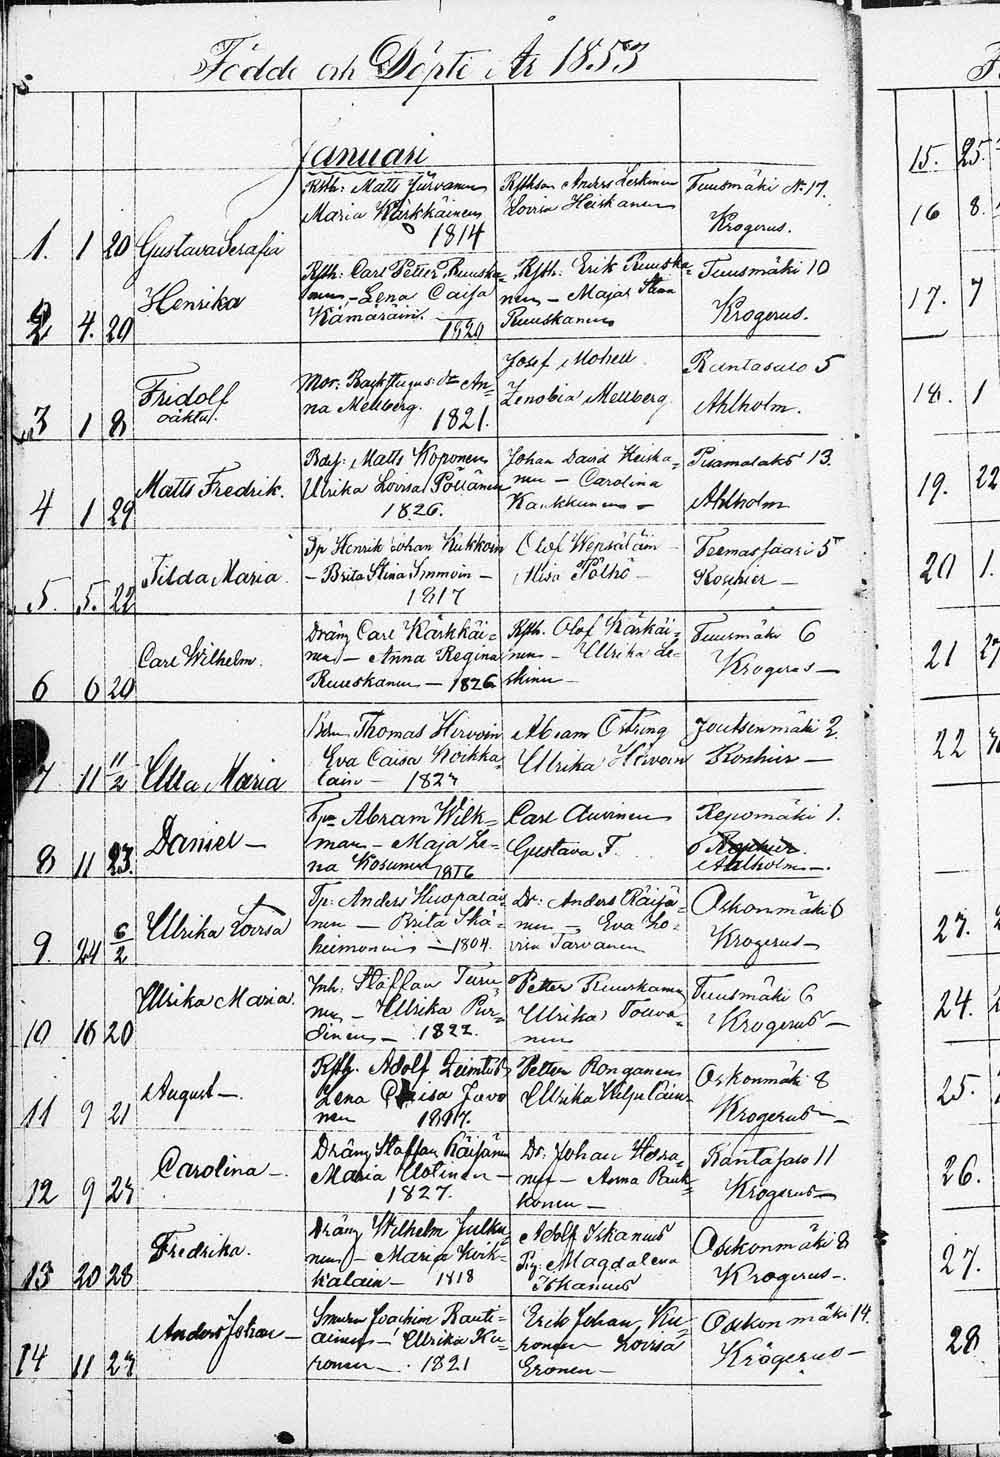 Födde och Döpte År 1853
Januari
1. 1 20 Gustava Serafia
Rsth: Matts
Maria Kärkkäinen
1814
Rsthson Anders Leskinen
Lovisa Heiskanen
Tuusmäki N. 17.
Krogerus.
2 4. 20 Henrika
Rsth: Carl Petter Ruuska=
nen – Lena Caisa
Kämäräin. 1820
Rsth: Erik Ruuska=
nen – Maja Stina
Ruuskanen
Tuusmäki 10
Krogerus.
3 1 8 Fridolf
oäkta.
Mor: An=
na Mellberg. 1821.
Josef Mohell
Zenobia Mellberg
Rantasalo 5
Ahlholm.
4 1 29 Matts Fredrik.
Matts Koponen
Ulrika Lovisa Pöllänen
1826.
Johan David Heiska=
nen – Carolina
Kaukkunen –
13.
Ahlholm
5. 5. 22 Tilda Maria.
Tp Henrik Johan Kukkoin
– Brita Stina Immoin –
1817
Olof Wepsäläin –
5
Koschier –
6 6 20 Carl Wilhelm.
Dräng Carl Kärkkäi=
nen – Anna Regina
Ruuskanen – 1826
Rsth. Olof Kärkäi=
nen – Ulrika Le=
skinen –
Tuusmäki 6
Krogerus –
7 11 11/2 Ulla Maria
Thomas Hirvoin
Eva Caisa Koikka=
lain – 1827
Abram Östring
Ulrika Hirvoin
Joutsenmäki 2.
Koschier –
8 11 23. Daniel –
Abram Wilk=
man – Maja Le=
na Kosunen 1816
Carl Auvinen
Gustava F.
Repomäki 1.
Ahlholm –.
9. 24 6/2 Ulrika Lovisa
Tp: Anders Huopalai
nen – Brita Ikä=
heimonen – 1804.
Dr: Anders Räisä=
nen – Eva Lo=
visa Tarvanen
Oskonmäki 6
Krogerus –
10 16 20 Ulrika Maria.
Inh: Staffan Turu=
nen – Ulrika Pur=
sinen – 1822.
Petter Ruuskanen
Ulrika Touva=
nen
Tuusmäki 6
Krogerus –
11 9 21 August –.
Rsth. Adolf
Lena Caisa Javo
nen
Petter Ronganen
Ulrika Wiljalain
Oskonmäki 8
Krogerus –
12 9 27 Carolina –
Dräng Staffan Räisänen
Maria Uotinen –
1827.
Dr. Johan
nen – Anna Pauk=
konen –
Rantasalo 11
Krogerus –
13 20 28 Fredrika.
Dräng Wilhelm Julku=
nen – Maria Koik=
kalain – 1818
Adolf Iskanius
Pig: Magdalena
Iskanius
Oskonmäki 8
Krogerus –.
14 11 27 Anders Johan –
Joachim Rauti=
ainen – Ulrika Ku=
ronen – 1821
Erik Johan Ku=
ronen Lovisa
Eronen –
Oskonmäki 14.
Krogerus –
15. 25
16 8.
17. 7
18. 1
19. 22
20 1.
21 27
22
23.
24.
25.
26.
27.
28